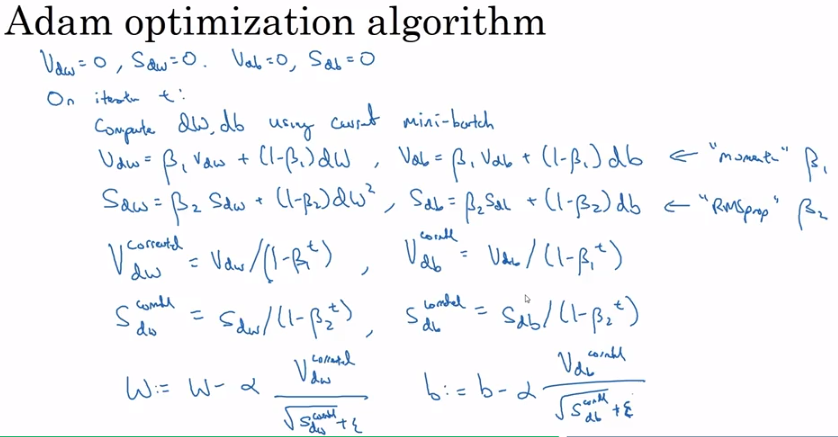 Adam optimization algorithm
V_dw = 0, S_dw = 0. V_db = 0, S_db = 0
On iteration t:
Compute dW, db using current mini-batch
V_dw = β₁ V_dw + (1-β₁) dW, V_db = β₁ V_db + (1-β₁) db ← "moment" β₁
S_dw = β₂ S_dw + (1-β₂) dW², S_db = β₂ S_db + (1-β₂) db ← "RMSprop" β₂
V_dw^corrected = V_dw / (1-β₁^t), V_db^corrected = V_db / (1-β₁^t)
S_dw^corrected = S_dw / (1-β₂^t), S_db^corrected = S_db / (1-β₂^t)
W := W - α V_dw^corrected / (√S_dw^corrected + ε) b := b - α V_db^corrected / (√S_db^corrected + ε)